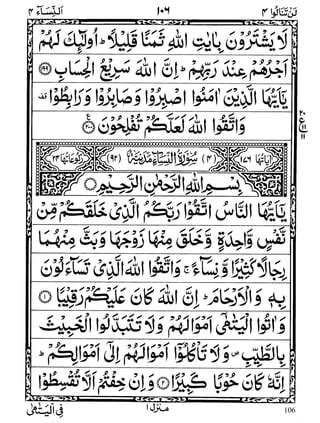 لن تنالوا ٤ ١٠٦ النساء ٤
لَا يَشْتَرُوْنَ بِاٰيٰتِ اللّٰهِ ثَمَنًا قَلِيْلًا ؕ اُولٰٓئِكَ لَهُمْ
اَجْرُهُمْ عِنْدَ رَبِّهِمْ ؕ اِنَّ اللّٰهَ سَرِيْعُ الْحِسَابِ ﴿۱۹۹﴾
يٰۤاَيُّهَا الَّذِيْنَ اٰمَنُوا اصْبِرُوْا وَصَابِرُوْا وَرَابِطُوْا
وَاتَّقُوا اللّٰهَ لَعَلَّكُمْ تُفْلِحُوْنَ ﴿۲۰۰﴾
اٰيَاتُهَا ١٧٦ (٤) سُوْرَةُ النِّسَآءِ مَدَنِيَّةٌ (٩٢) رُكُوْعَاتُهَا ٢٤
بِسْمِ اللّٰهِ الرَّحْمٰنِ الرَّحِيْمِ
يٰۤاَيُّهَا النَّاسُ اتَّقُوْا رَبَّكُمُ الَّذِيْ خَلَقَكُمْ مِّنْ
نَّفْسٍ وَّاحِدَةٍ وَّخَلَقَ مِنْهَا زَوْجَهَا وَبَثَّ مِنْهُمَا
رِجَالًا كَثِيْرًا وَّنِسَآءً ۚ وَاتَّقُوا اللّٰهَ الَّذِيْ تَسَآءَلُوْنَ
بِهٖ وَالْاَرْحَامَ ؕ اِنَّ اللّٰهَ كَانَ عَلَيْكُمْ رَقِيْبًا ﴿۱﴾
وَاٰتُوا الْيَتٰمٰۤى اَمْوَالَهُمْ وَلَا تَتَبَدَّلُوا الْخَبِيْثَ
بِالطَّيِّبِ ۪ وَلَا تَاْكُلُوْۤا اَمْوَالَهُمْ اِلٰۤى اَمْوَالِكُمْ ؕ
اِنَّهٗ كَانَ حُوْبًا كَبِيْرًا ﴿۲﴾ وَاِنْ خِفْتُمْ اَلَّا تُقْسِطُوْا
فِي الْيَتٰمٰى منزل ١ 106